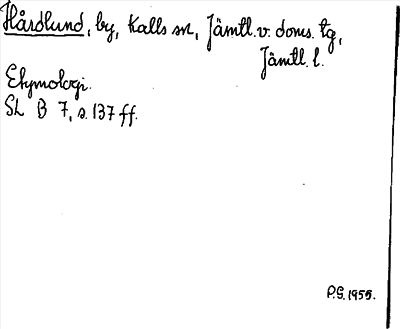 Hårdlund, by, Kalls sn, Jämtl. v. doms. tg,
Jämtl. l.
Etymologi.
SL B 7, s. 137 ff.
P.G. 1955.